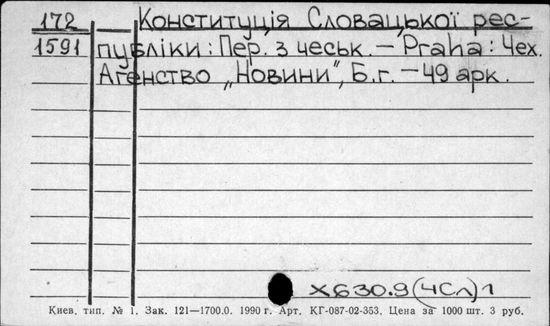 172 Конституція Словацької рес-
1591 публіки: Пер. з чеськ. — Praha: Чех.
Агенство „Новини", Б.г. — 49 арк.
Х630.9(4Сл)1
Киев. тип. № 1. Зак. 121—1700.0. 1990 г. Арт. КГ-087-02-353. Цена за 1000 шт. 3 руб.